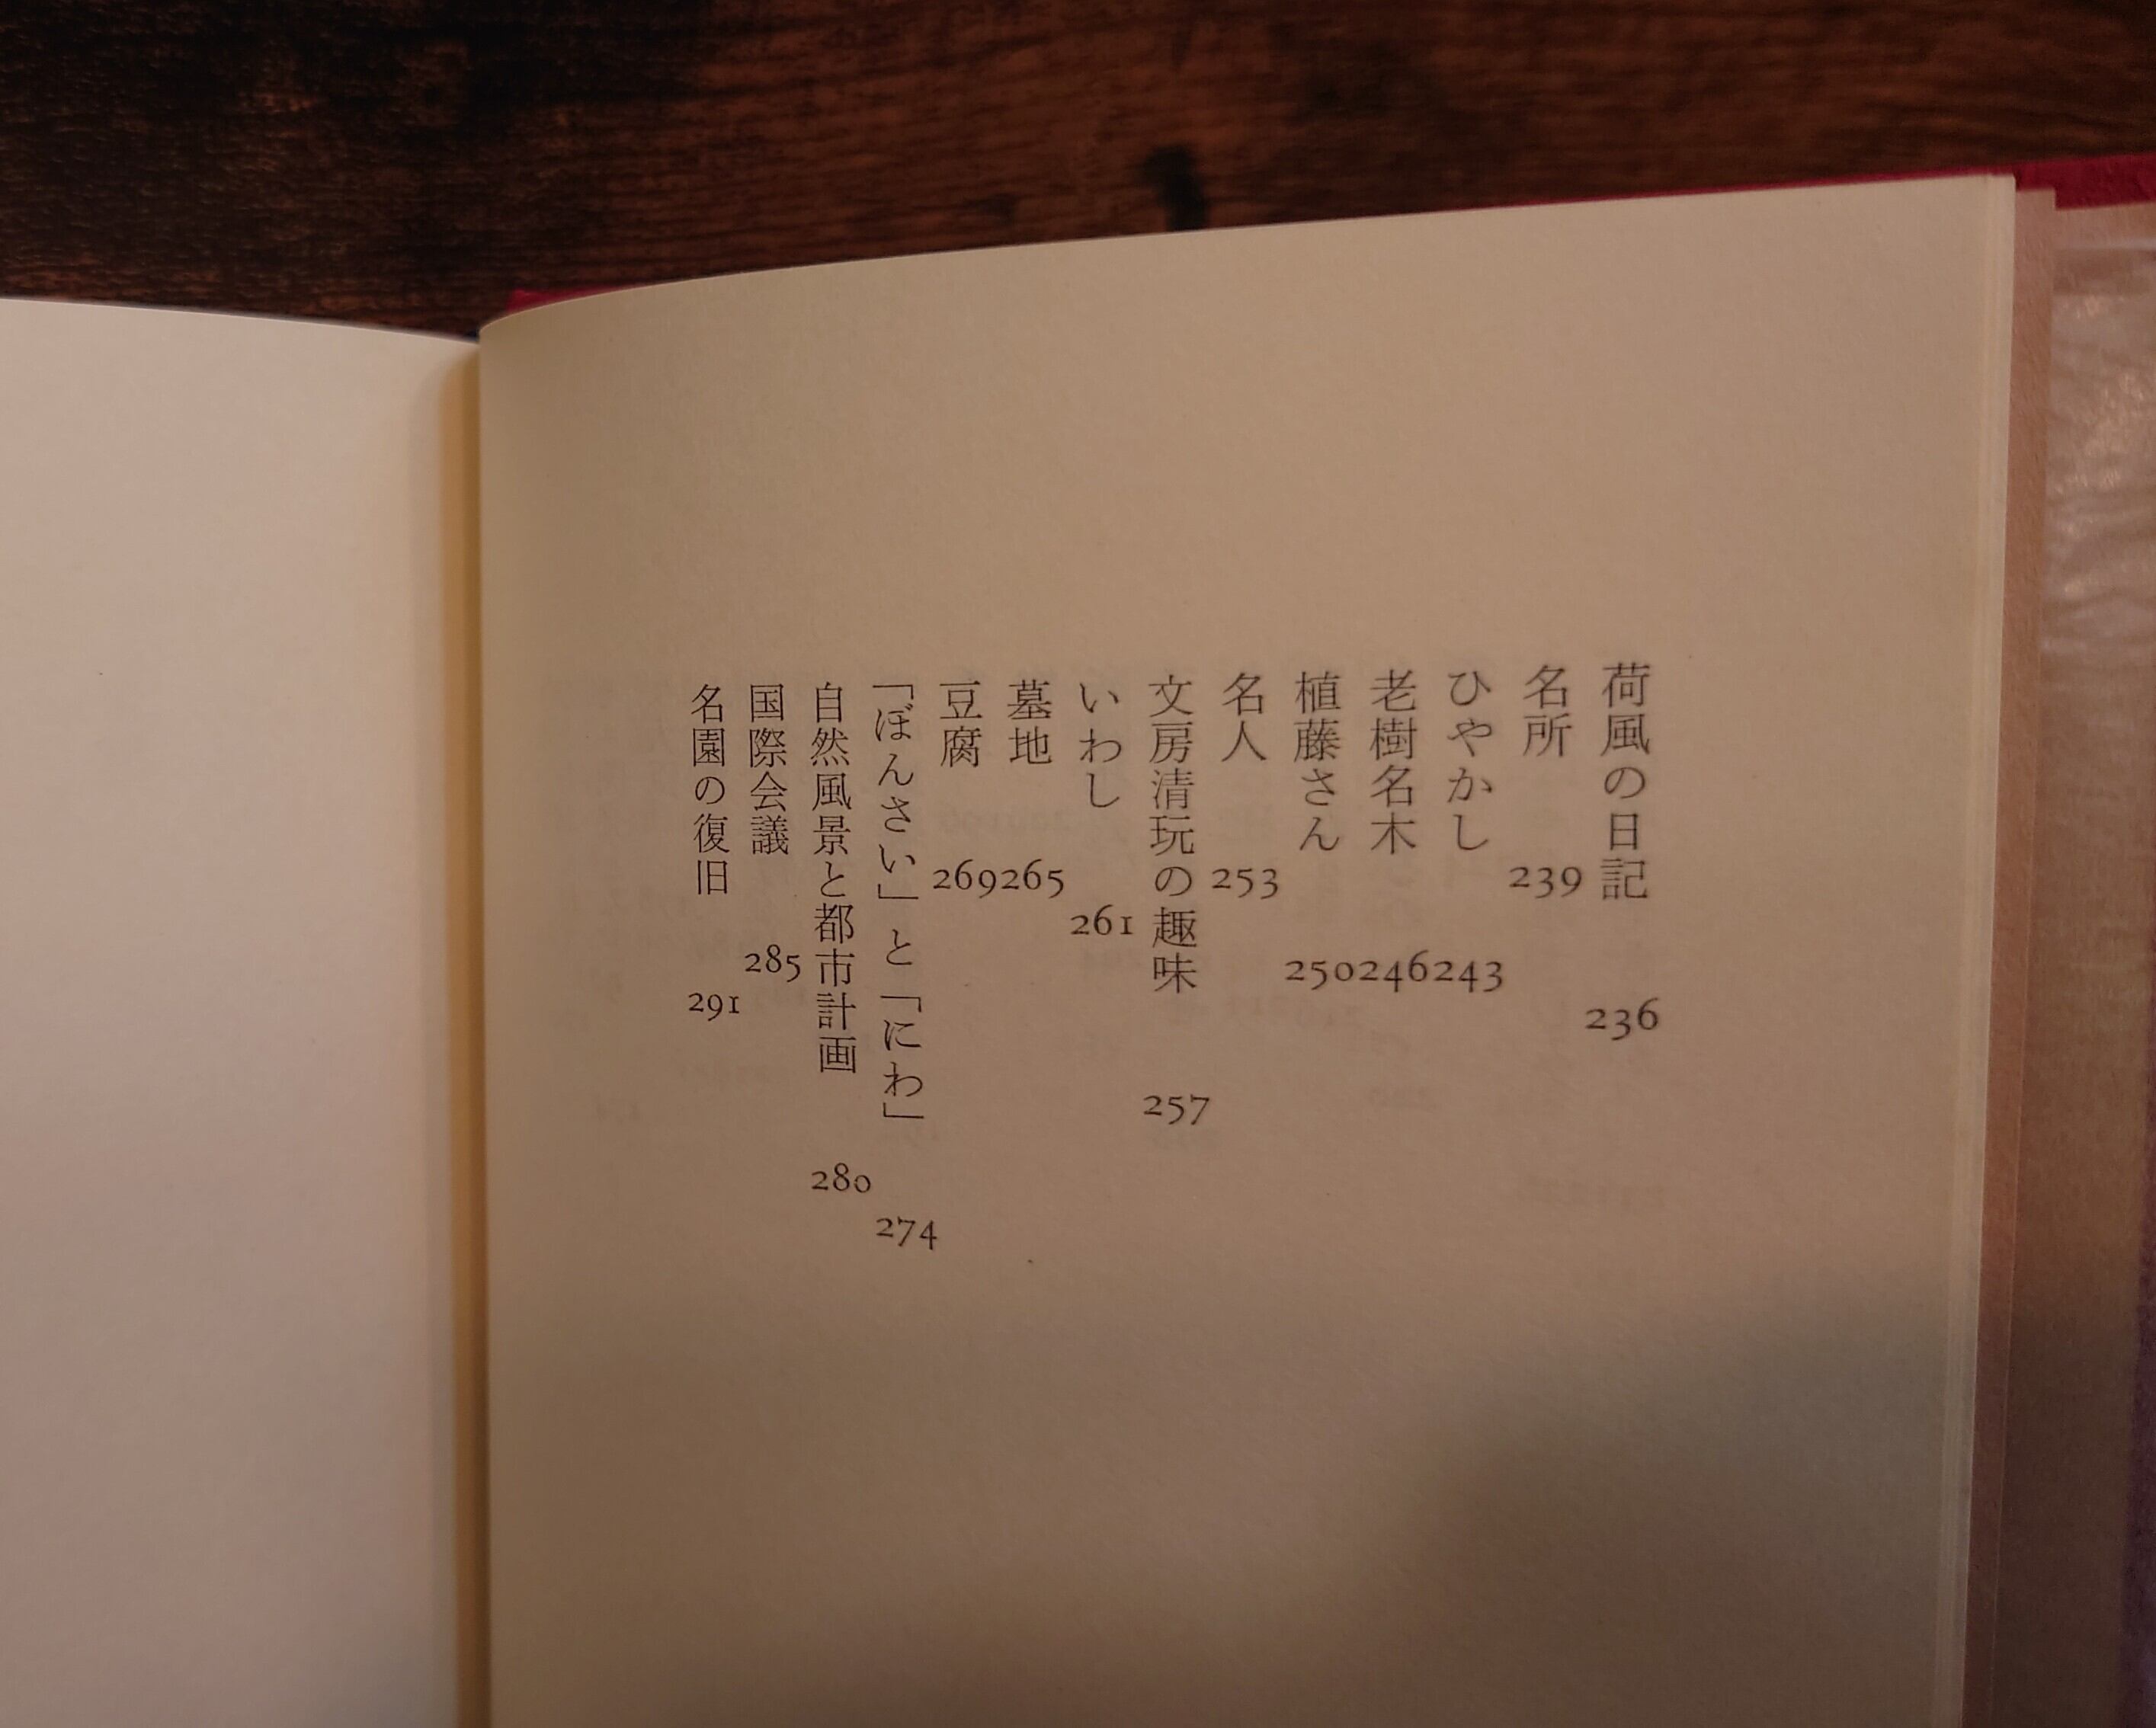 荷風の日記 236
名所 239
ひやかし 243
老樹名木 246
植藤さん 250
名人 253
文房清玩の趣味 257
いわし 261
墓地 265
豆腐 269
「ぼんさい」と「にわ」 274
自然風景と都市計画 280
国際会議 285
名園の復旧 291